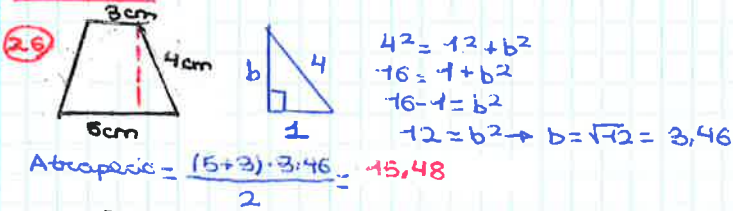 26
3cm
4cm
5cm
b
4
1
4² = 1² + b²
16 = 1 + b²
16-1 = b²
12 = b² → b = √12 = 3,46
Atrapecio = (5+3)·3,46 / 2 = 15,48